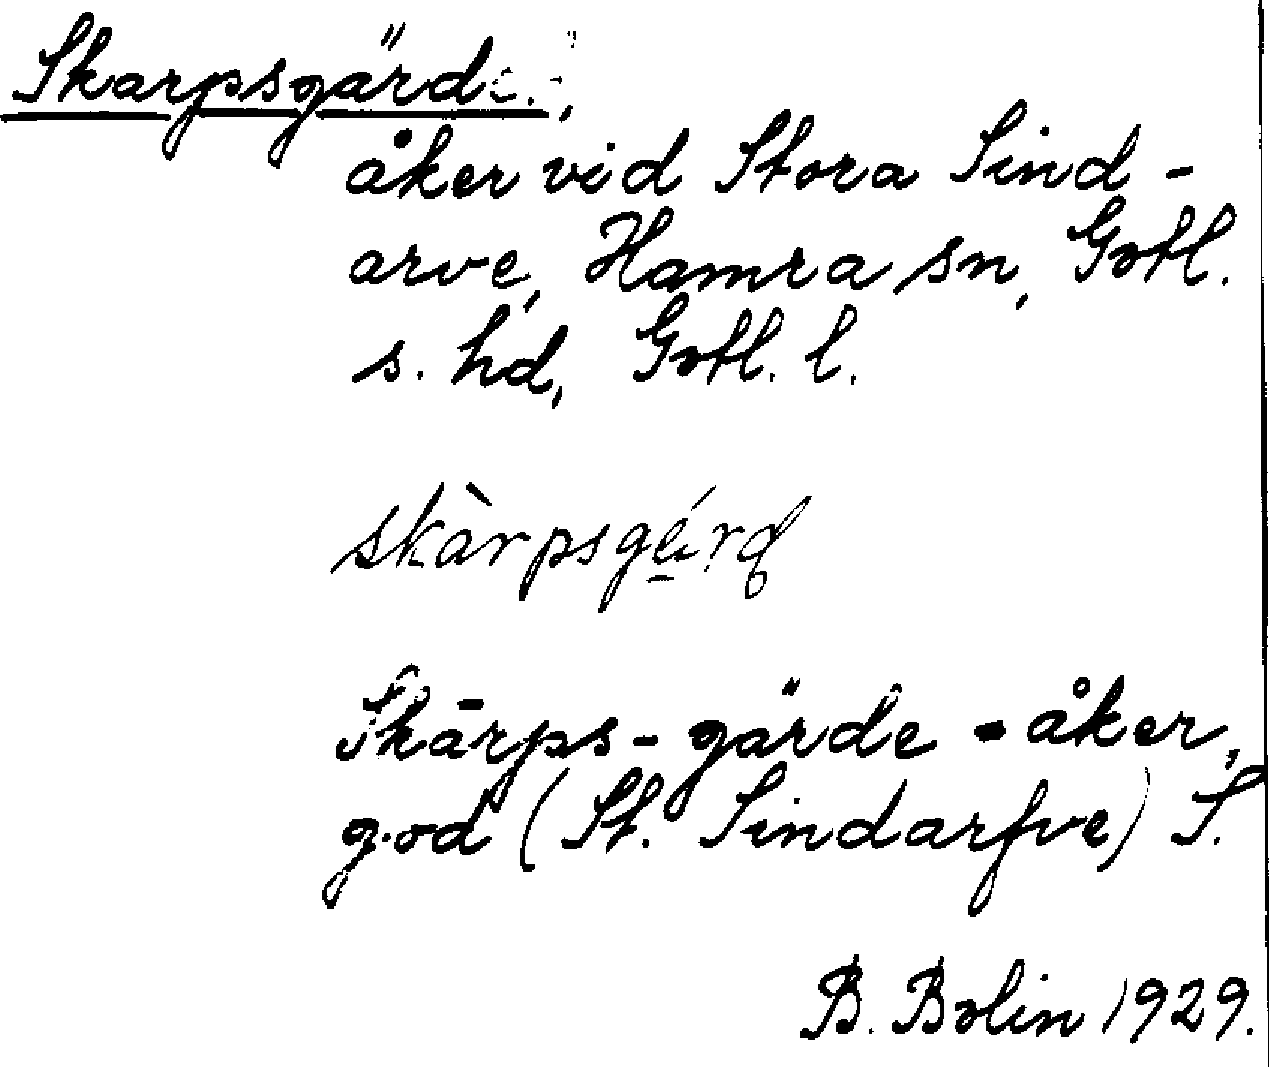 Skarpsgärde,
åker vid Stora Sind-
arve, Hamra sn, Gotl.
s. hd, Gotl. l.
skàrpsgérd
Skārps-gärde - åker,
god (St. Sindarfve) S.
B. Bolin 1929.